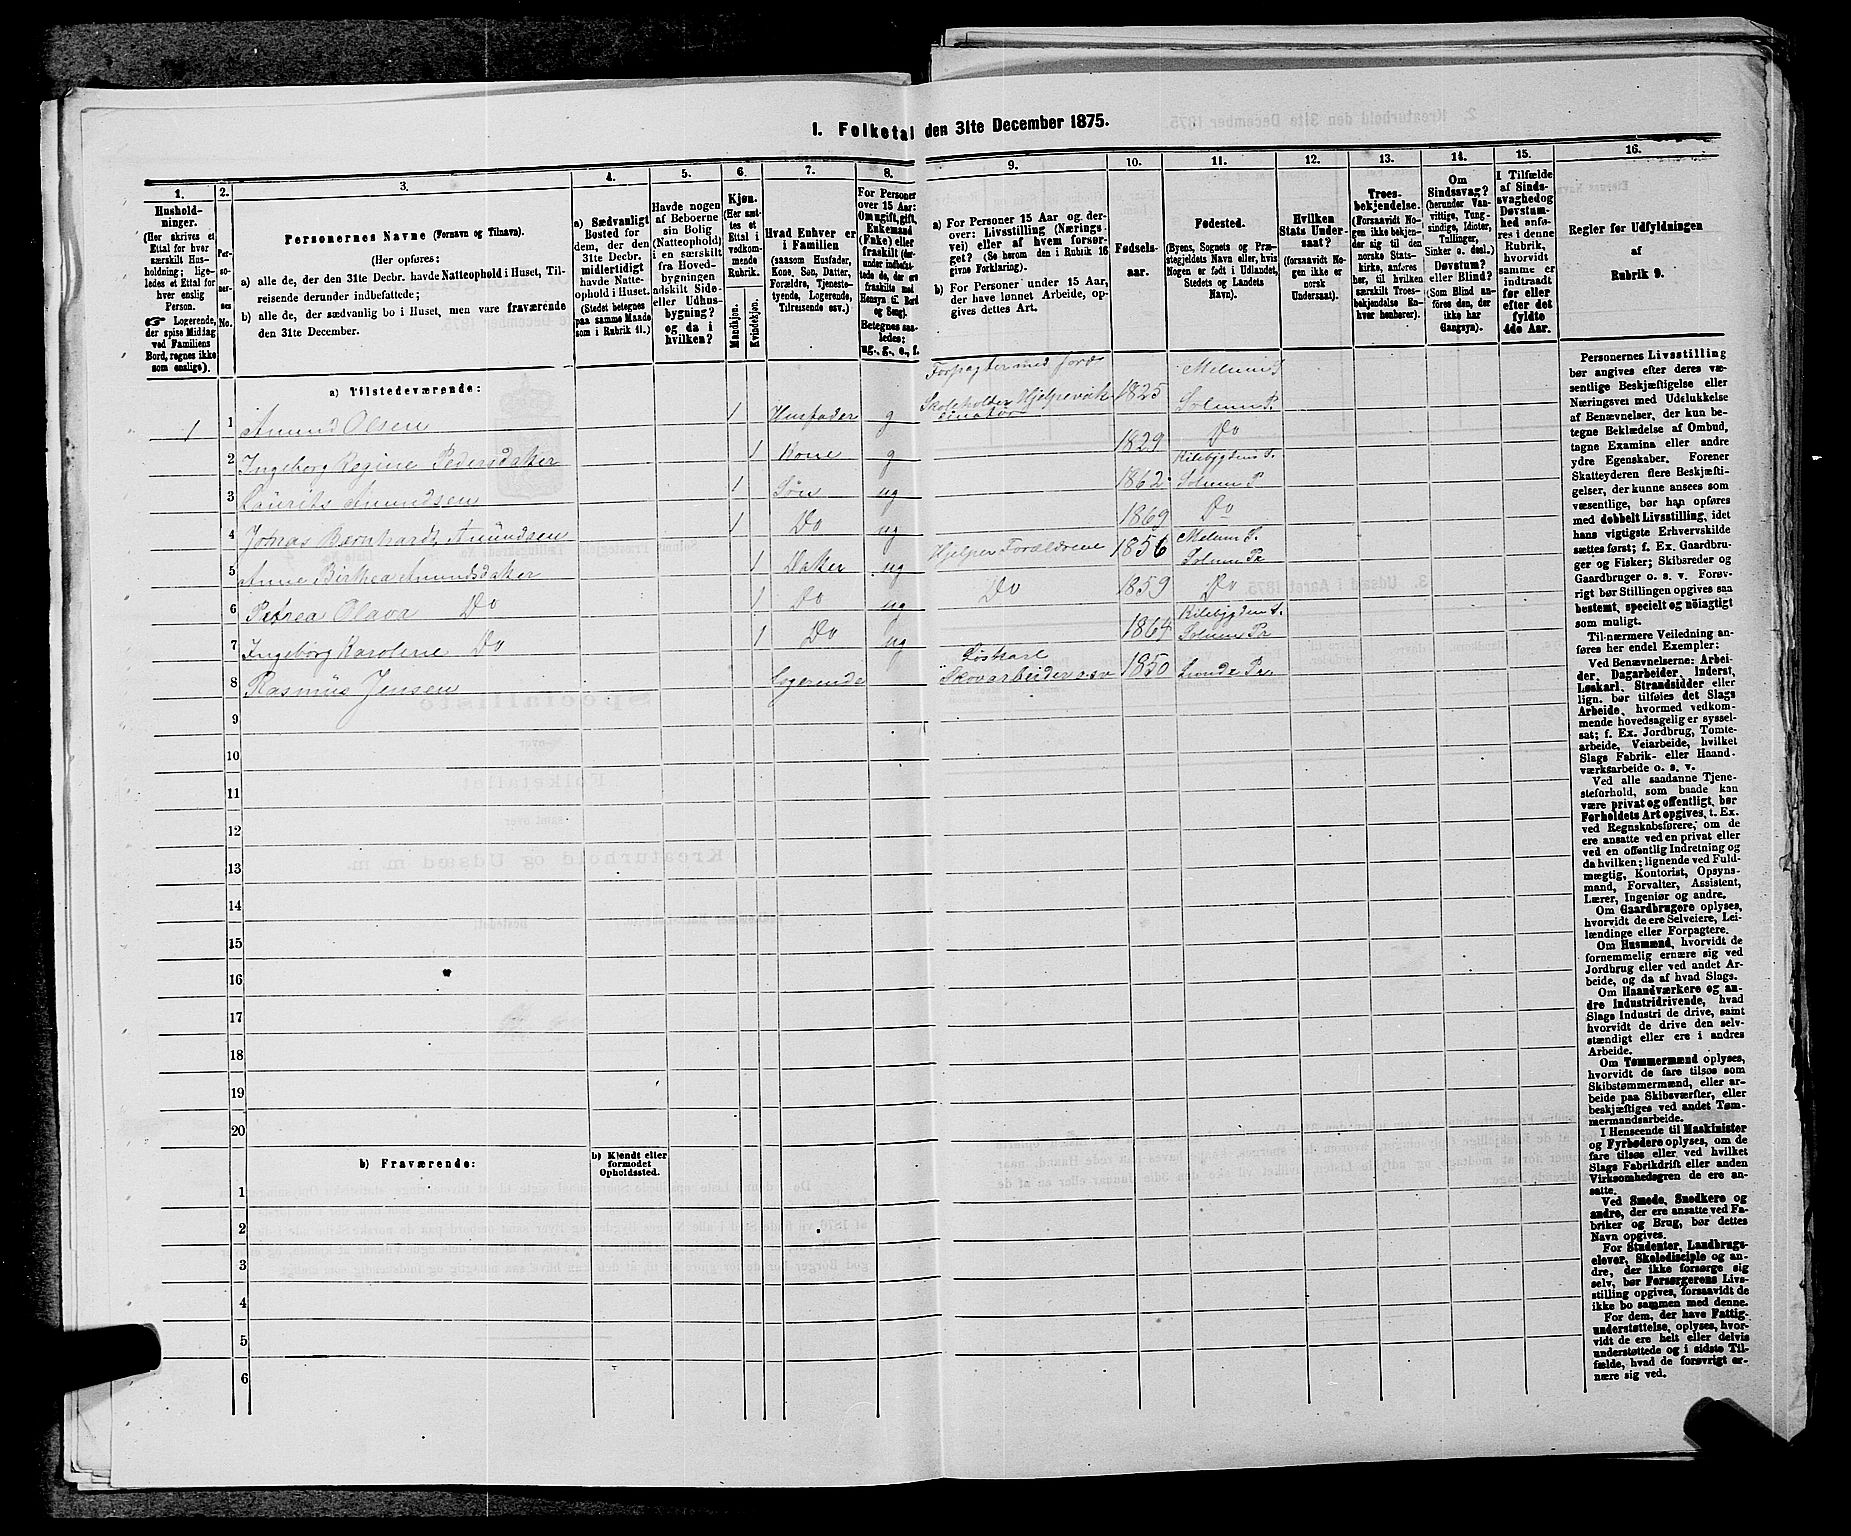 I. Folketal den 31te December 1875.
1. 2. 3. 4. 5. 6. 7. 8. 9. 10. 11. 12. 13. 14. 15. 16.
Hushold-
ninger.
(Her skrives et
Ettal for hver
særskilt Hus-
holdning; lige-
ledes et Ettal for
hver enslig
Person.
Logerende,
der spise Middag
ved Familiens
Bord, regnes ikke
som enslige).
Per-
so-
ner-
nes
No.
Personernes Navne (Fornavn og Tilnavn).
(Her opføres:
a) alle de, der den 31te Decbr. havde Natteophold i Huset, Til-
reisende derunder indbefattede;
b) alle de, der sædvanlig bo i Huset, men vare fraværende
den 31te December.
a) Sædvanligt
Bosted for
dem, der den
31te Decbr.
midlertidigt
havde Natte-
ophold i Huset.
(Stedet betegnes
paa samme Maade
som i Rubrik 11.)
Havde nogen
af Beboerne
sin Bolig
(Natteophold)
i en særskilt
fra Hoved-
bygningen
adskilt Side-
eller Udhus-
bygning?
og da i
hvilken?
Kjøn.
(Her sæt-
tes et
Ettal i
vedkom-
mende
Rubrik.
Mandkjøn.
Kvindekjøn.
Hvad Enhver er
i Familien
(saasom Husfader,
Kone, Søn, Datter,
Forældre, Tjeneste-
tyende, Logerende,
Tilreisende osv.)
For Personer
over 15 Aar:
Om ugift, gift,
Enkemand
(Enke) eller
fraskilt (der-
under indbefat-
tede de, der ere
fraskilte med
Hensyn til Bord
og Seng).
Betegnes saa-
ledes:
ug., g., e., f.
a) For Personer 15 Aar og der-
over: Livsstilling (Nærings-
vei) eller af hvem forsør-
get? (Se herom den i Rubrik 16
givne Forklaring).
b) For Personer under 15 Aar,
der have lønnet Arbeide, op-
gives dettes Art.
Fødsels-
aar.
Fødested.
(Byens, Sognets og Præ-
stegjeldets Navn eller, hvis
Nogen er født i Udlandet,
Stedets og Landets
Navn).
Hvilken
Stats Under-
saat?
(forsaavidt No-
gen ikke er
norsk
Undersaat).
Troes-
bekjendelse.
(Forsaavidt No-
gen ikke bekjen-
der sig til den
norske Stats-
kirke, anføres
her, til hvilken
særskilt Troes-
bekjendelse En-
hver henhører).
Om
Sindssvag?
(herunder Van-
vittige, Tung-
sindige, Idioter,
Tullinger,
Sinker o. desl.)
Døvstum?
eller Blind?
(Som Blind an-
føres den, der
ikke har
Gangsyn).
I Tilfælde
af Sinds-
svaghed og
Døvstum-
hed anfø-
res i denne
Rubrik,
hvorvidt
samme er
indtraadt
før eller
efter det
fyldte
4de Aar.
Regler for Udfyldningen
af
Rubrik 9.
a) Tilstedeværende:
Forpagter med Jord Melum S
1 1 Amund Olsen 1 Husfader g Skoleholder 1825 Solum P.
2 Ingeborg Regine Pedersdatter 1 Kone g 1829 Do
Kilebygdens S.
3 Laurits Amundsen 1 Søn ug 1862 Solum P
4 Jonas Bernhardt Amundsen 1 Do ug 1869 Do
Melum S.
5 Anne Birthea Amundsdatter 1 Datter ug Hjelper Forældrene 1856 Solum Pr
6 Petrea Olava Do 1 Do ug Do 1859 Do
Kilebygdens S.
7 Ingeborg Karoline Do 1 Do ug 1864 Solum Pr
Løskarl
8 Rasmus Jensen Logerende Skovarbeider osv 1850 Pr
9
10
11
12
13
14
15
16
17
18
19
20
b) Fraværende:
b) Kjendt eller
formodet
Opholdssted.
1
2
3
4
5
6
Personernes Livsstilling
bør angives efter deres væ-
sentlige Beskjæftigelse eller
Næringsvei med Udelukkelse
af Benævnelser, der kun be-
tegne Beklædelse af Ombud,
tagne Examina eller andre
ydre Egenskaber. Forener
Skatteyderen flere Beskjæfti-
gelser, der kunne ansees som
væsentlige, bør han opføres
med dobbelt Livsstilling, idet
hans vigtigste Erhvervskilde
sættes først; f. Ex. Gaardbru-
ger og Fisker; Skibsreder og
Gaardbruger o. s. v. Forøv-
rigt bør Stillingen opgives saa
bestemt, specielt og nøiagtigt
som muligt.
Til nærmere Veiledning an-
føres her endel Exempler:
Ved Benævnelserne: Arbei-
der, Dagarbeider, Inderst,
Løskarl, Strandsidder eller
lign. bør tilføies det Slags
Arbeide, hvormed vedkom-
mende hovedsagelig er syssel-
sat; f. Ex. Jordbrug, Tomte-
arbeide, Veiarbeide, hvilket
Slags Fabrik- eller Haand-
værksarbeide o. s. v.
Ved alle saadanne Tjene-
steforhold, som baade kan
være privat og offentligt, bør
Forholdets Art opgives, t. Ex.
ved Regnskabsførere, om de
ere ansatte ved en privat eller
ved en offentlig Indretning og
da hvilken; lignende ved Fuld-
mægtig, Kontorist, Opsyns-
mand, Forvalter, Assistent,
Lærer, Ingeniør og andre.
Om Gaardbrugere oplyses,
hvorvidt de ere Selveiere, Lei-
lændinge eller Forpagtere.
Om Husmænd, hvorvidt de
fornemmelig ernære sig ved
Jordbrug eller ved andet Ar-
beide, og da af hvad Slags.
Om Haandværkere og an-
dre Industridrivende, hvad
Slags Industri de drive, samt
hvorvidt de drive den selv-
stændigt eller ere i andres
Arbeide.
Om Tømmermænd oplyses,
hvorvidt de fare tilsøs som
Skibstømmermænd, eller ar-
beide paa Skibsværfter, eller
beskjæftiges ved andet Tøm-
mermandsarbeide.
I Henseende til Maskinister
og Fyrbødere oplyses, om de
fare tilsøs eller ved hvilket
Slags Fabrikdrift eller anden
Virksomhedsgren de ere an-
satte.
Ved Smede, Snedkere og
andre, der ere ansatte ved Fa-
briker og Brug, bør dettes
Navn opgives.
For Studenter, Landbrugs-
elever, Skoledisciple og an-
dre, der ikke forsørge sig
selv, bør Forsørgerens Livs-
stilling opgives, forsaavidt de
ikke bo sammen med denne.
For dem, der have Fattig-
understøttelse, oplyses, hvor-
vidt de ere helt eller delvis
understøttede og i sidste Til-
fælde, hvad de forøvrigt er-
nære sig ved.